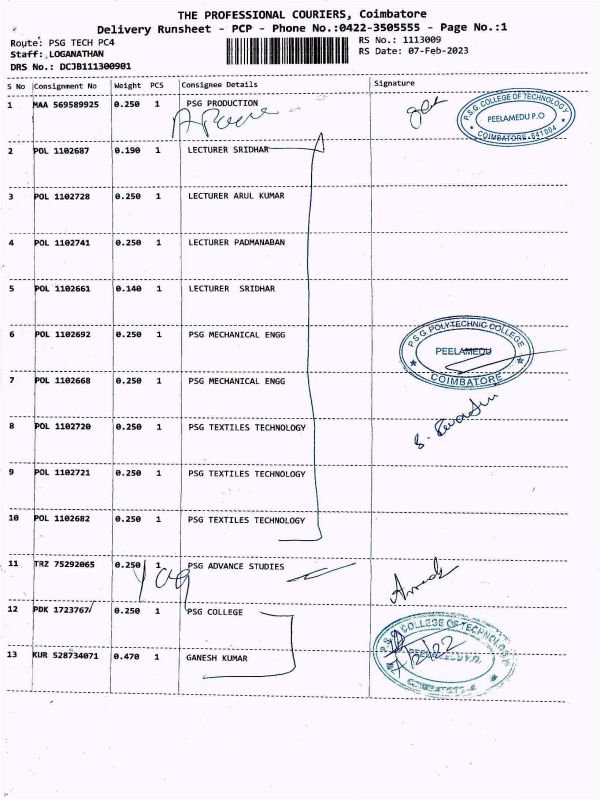 THE PROFESSIONAL COURIERS, Coimbatore
Delivery Runsheet - PCP - Phone No.:0422-3505555 - Page No.:1
Route: PSG TECH PC4
RS No.: 1113009
Staff: LOGANATHAN
RS Date: 07-Feb-2023
DRS No.: DCJB111300901
S No Consignment No Weight PCS Consignee Details Signature
1 MAA 569589925 0.250 1 PSG PRODUCTION
P.S.G. COLLEGE OF TECHNOLOGY
PEELAMEDU P.O
COIMBATORE-641004
2 POL 1102687 0.190 1 LECTURER SRIDHAR
3 POL 1102728 0.250 1 LECTURER ARUL KUMAR
4 POL 1102741 0.250 1 LECTURER PADMANABAN
5 POL 1102661 0.140 1 LECTURER SRIDHAR
6 POL 1102692 0.250 1 PSG MECHANICAL ENGG
P.S.G POLYTECHNIC COLLEGE
PEELAMEDU
COIMBATORE
7 POL 1102668 0.250 1 PSG MECHANICAL ENGG
8 POL 1102720 0.250 1 PSG TEXTILES TECHNOLOGY
9 POL 1102721 0.250 1 PSG TEXTILES TECHNOLOGY
10 POL 1102682 0.250 1 PSG TEXTILES TECHNOLOGY
11 TRZ 75292065 0.250 1 PSG ADVANCE STUDIES
12 PDK 1723767 0.250 1 PSG COLLEGE
P.S.G. COLLEGE OF TECHNOLOGY
PEELAMEDU P.O.
13 KUR 528734071 0.470 1 GANESH KUMAR